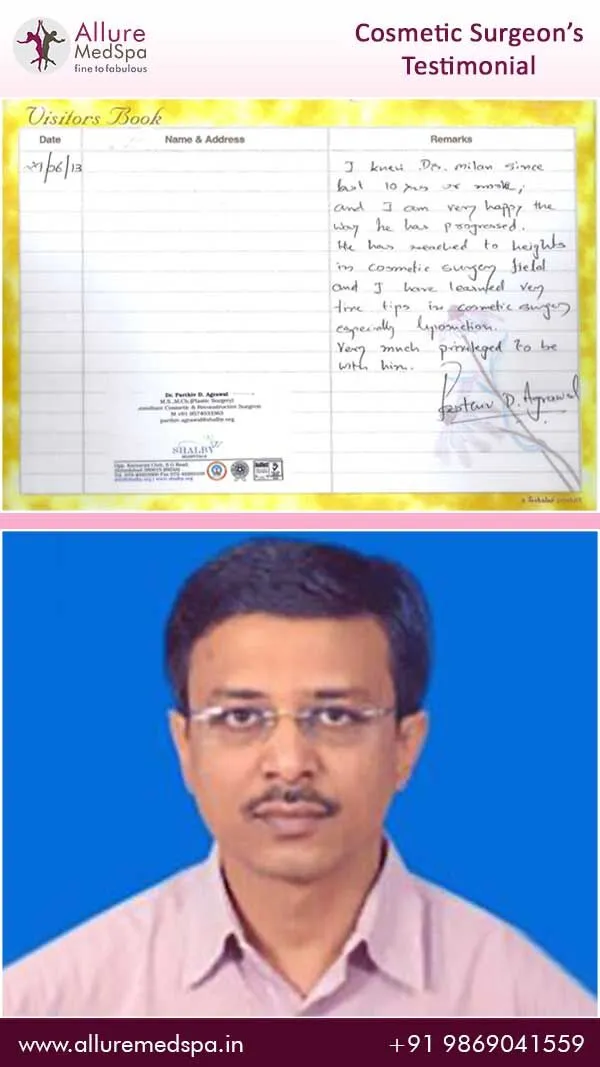 Allure
MedSpa
fine to fabulous
Cosmetic Surgeon's
Testimonial
Visitors Book
Date
Name & Address
Remarks
29/06/13
I knew Dr. Milan since
last 10 yrs or more,
and I am very happy the
way he has progressed.
He has reached to heights
in cosmetic surgery field
and I have learned very
fine tips in cosmetic surgery
especially liposuction.
Very much privileged to be
with him.
Parthiv D. Agrawal
Dr. Parthiv D. Agrawal
M.S., M.Ch. (Plastic Surgery)
Consultant Cosmetic & Reconstructive Surgeon
M +91 9574033363
parthiv.agrawal@shalby.org
SHALBY
HOSPITALS
Opp. Karnavati Club, S G Road,
www.alluremedspa.in
+91 9869041559